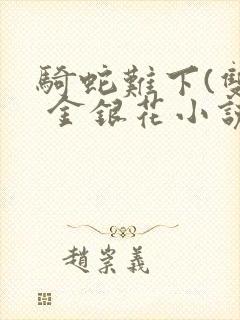 騎蛇難下(雙
金銀花小說
趙崇義